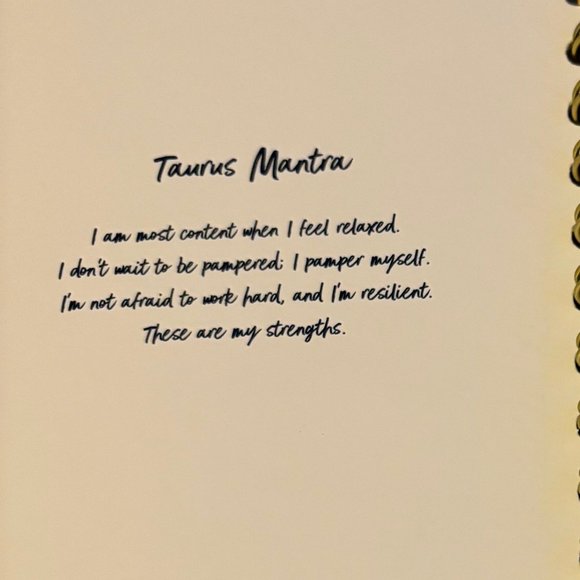 Taurus Mantra
I am most content when I feel relaxed.
I don't wait to be pampered; I pamper myself.
I'm not afraid to work hard, and I'm resilient.
These are my strengths.